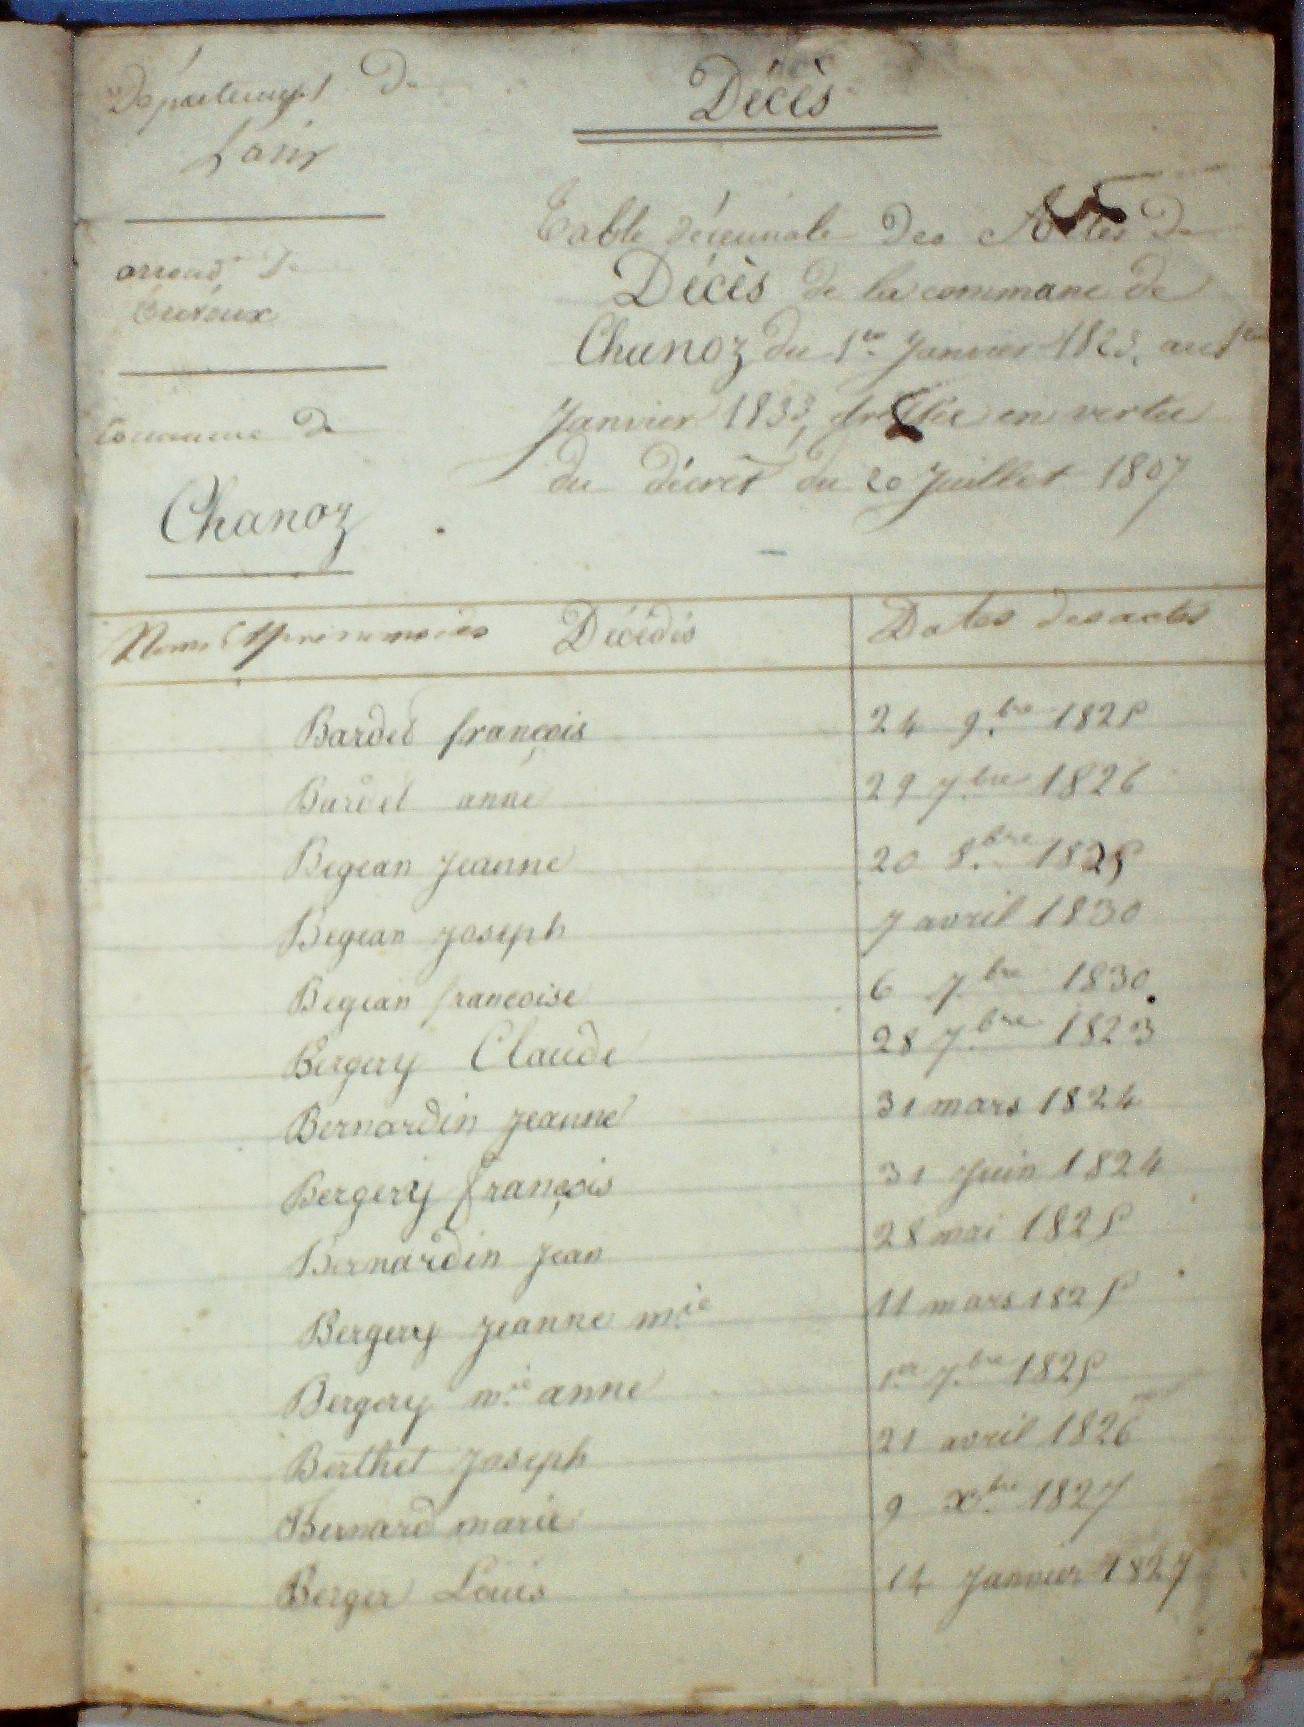 Département de
L'ain
arrond.t de
Trévoux
Commune de
Chanoz
Décès
Table décennale des Actes de
Décès de la commune de
Chanoz du 1er Janvier 1823, au 1er
Janvier 1833, dressée en vertu
du décret du 20 Juillet 1807
Noms et prénoms des Décédés
Dates des actes
Bardet françois 24 9.bre 1825
Bardet anne 29 7.bre 1826
Begean Jeanne 20 8.bre 1825
Begean Joseph 7 avril 1830
Begean francoise 6 7.bre 1830
Bergery Claude 28 7.bre 1823
Bernardin Jeanne 31 mars 1824
Bergery françois 31 Juin 1824
Bernardin Jean 28 mai 1825
Bergery Jeanne m.ie 11 mars 1825
Bergery m.ie anne 1.er 7.bre 1825
Berthet Joseph 21 avril 1826
Bernard marie 9 X.bre 1827
Berger Louis 14 Janvier 1827